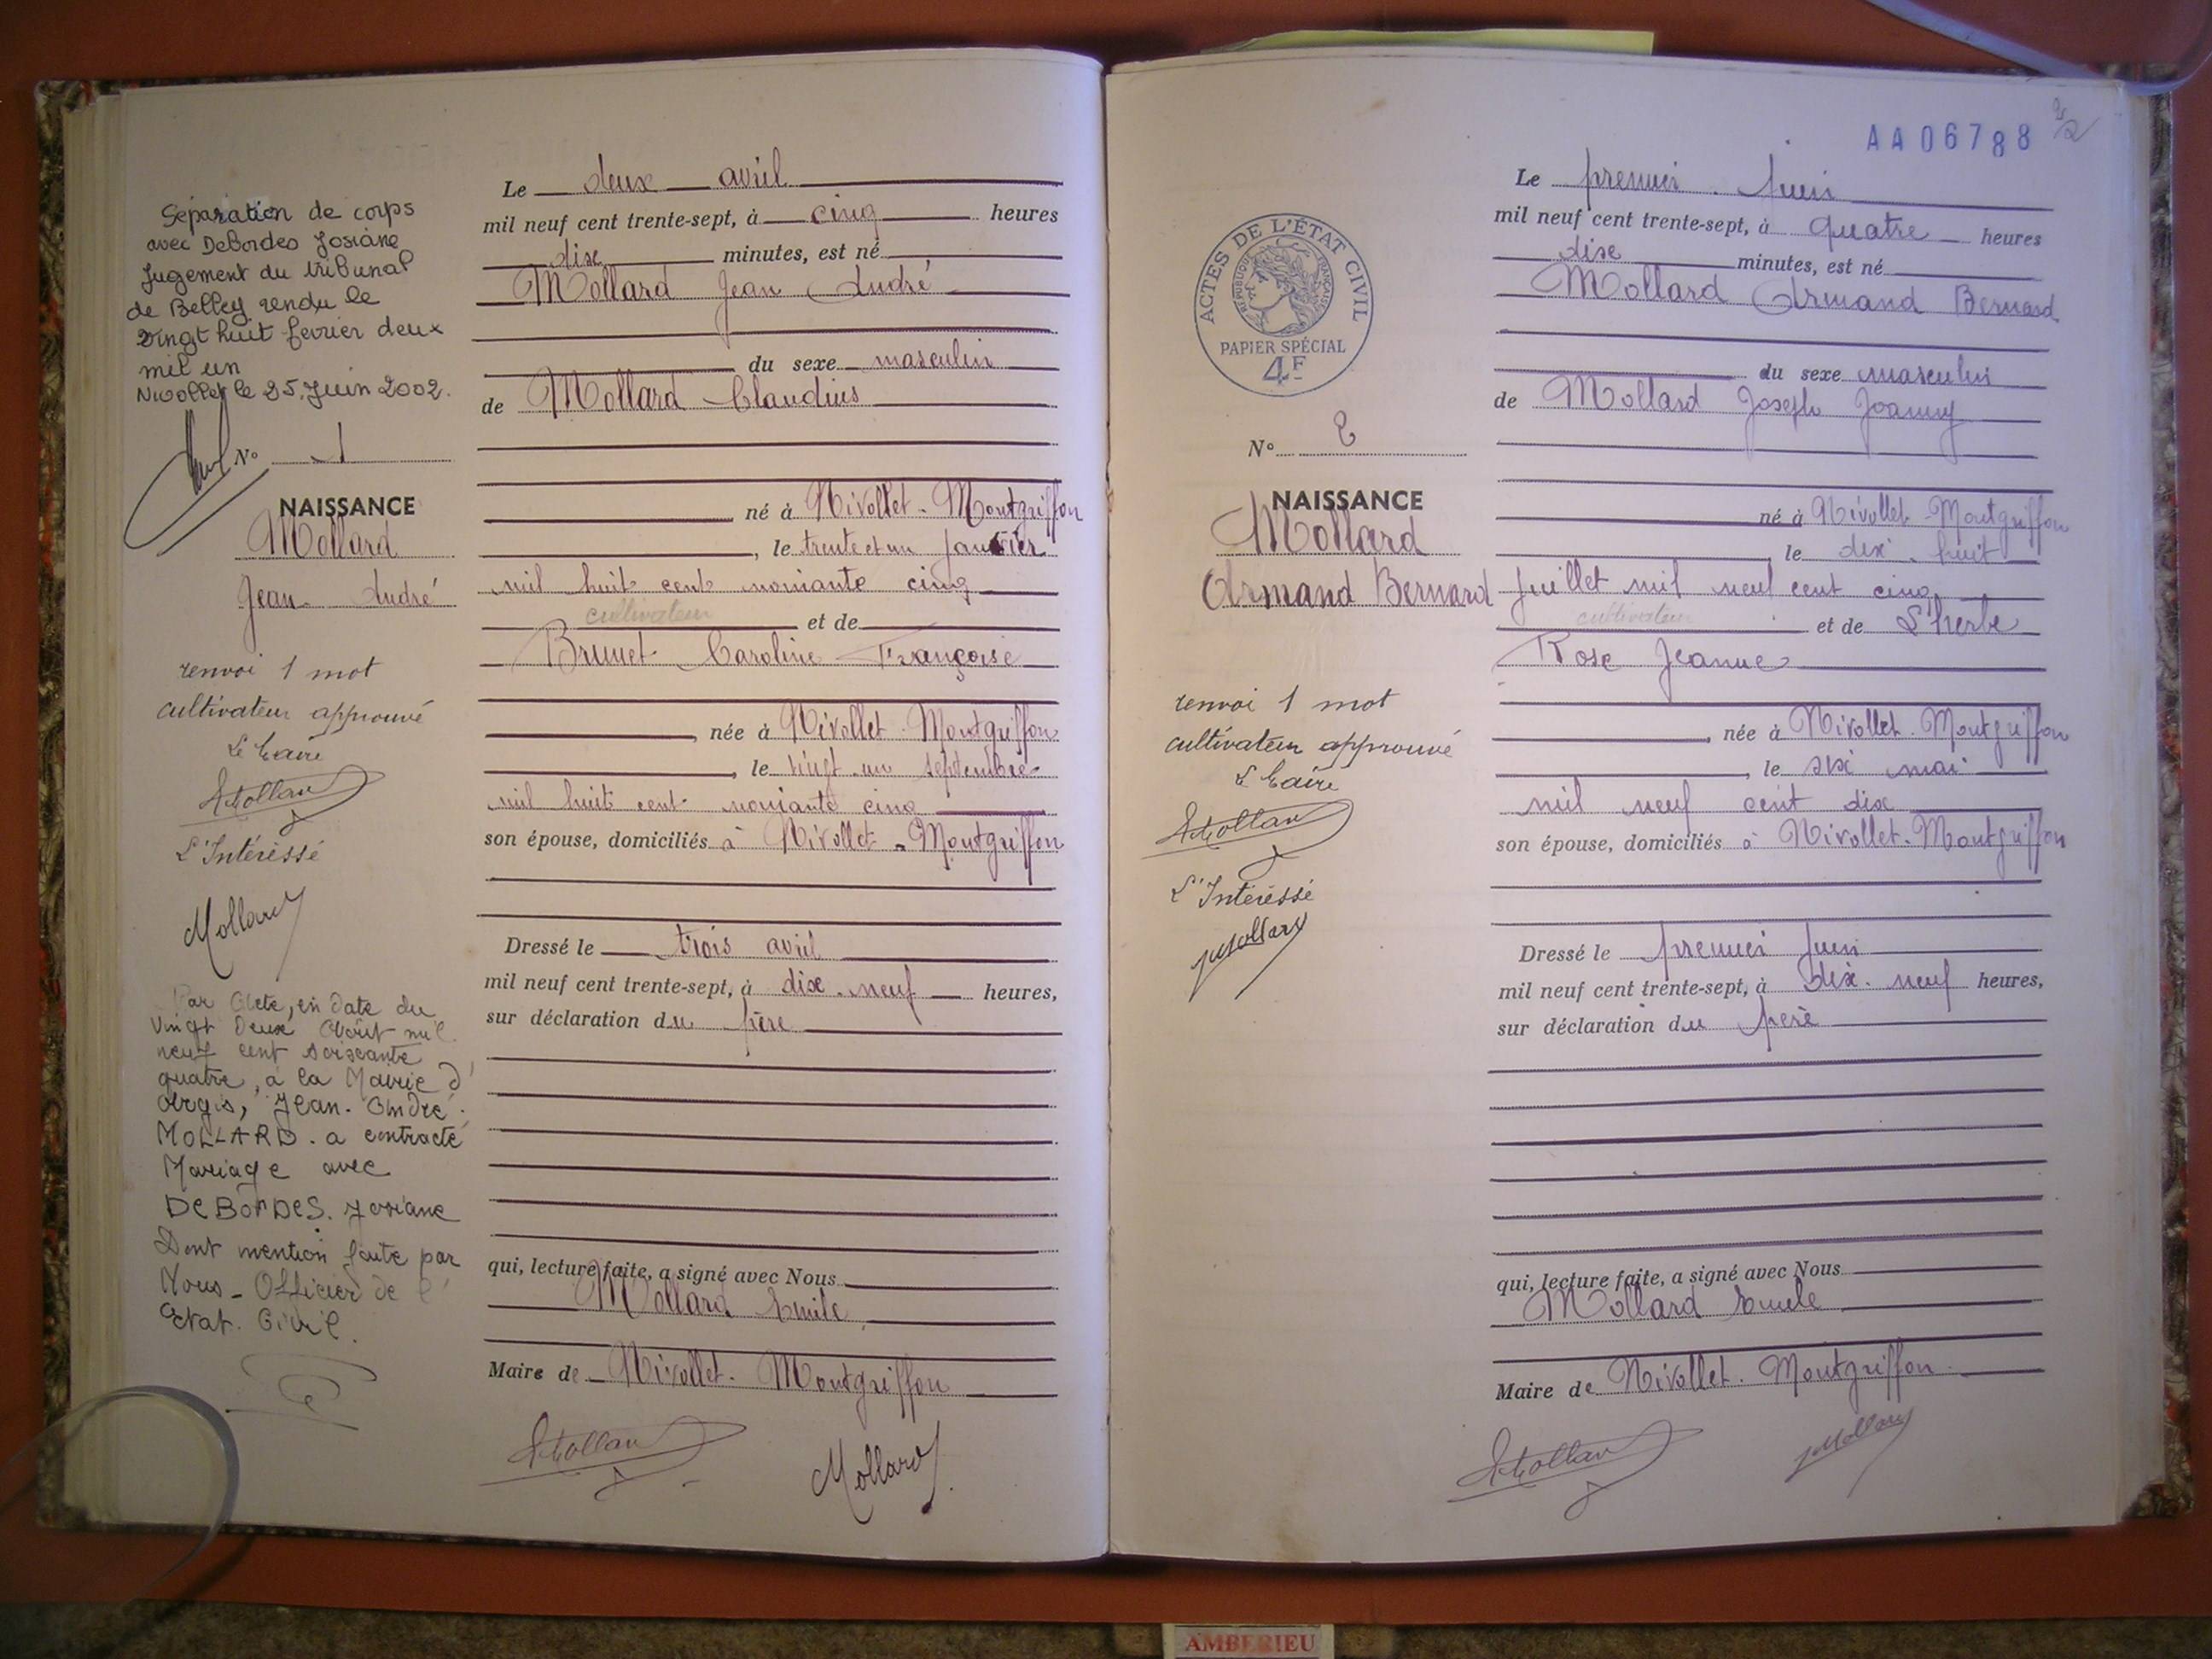 Séparation de corps
avec Debordes Josiane
Jugement du tribunal
de Belley rendu le
vingt huit fevrier deux
mil un
Nivollet le 25 Juin 2002.
N° 1
NAISSANCE
Mollard
Jean André
renvoi 1 mot
cultivateur approuvé
Le Maire
L'Intéressé
Mollard
Par Acte, en date du
vingt Deux Août mil
neuf cent soixante
quatre, à la Mairie d'
Argis, Jean-André
MOLLARD. a contracté
Mariage avec
DeBORDES. Josiane
Dont mention faite par
Nous - Officier de l'
Etat. Civil.
Le deux avril
mil neuf cent trente-sept, à cinq heures
dix minutes, est né
Mollard Jean André
du sexe masculin
de Mollard Claudius
né à Nivollet-Montgriffon
, le trente et un Janvier
mil huit cent noniante cinq
cultivateur et de
Brunet Caroline Françoise
, née à Nivollet-Montgriffon
, le vingt-un septembre
mil huit cent noniante cinq
son épouse, domiciliés à Nivollet-Montgriffon
Dressé le trois avril
mil neuf cent trente-sept, à dix-neuf heures,
sur déclaration du père
qui, lecture faite, a signé avec Nous
Mollard Emile
Maire de Nivollet-Montgriffon
Mollard
AA06788
2
ACTES DE L'ÉTAT CIVIL
RÉPUBLIQUE FRANÇAISE
PAPIER SPÉCIAL
4F
N° 2
NAISSANCE
Mollard
Armand Bernard
renvoi 1 mot
cultivateur approuvé
Le Maire
L'Intéressé
JMollard
Le premier Juin
mil neuf cent trente-sept, à quatre heures
dix minutes, est né
Mollard Armand Bernard
du sexe masculin
de Mollard Joseph Joanny
né à Nivollet-Montgriffon
le dix-huit
Juillet mil neuf cent cinq
cultivateur et de Lherbe
Rose Jeanne
, née à Nivollet-Montgriffon
, le six mai
mil neuf cent dix
son épouse, domiciliés à Nivollet-Montgriffon
Dressé le premier Juin
mil neuf cent trente-sept, à dix-neuf heures,
sur déclaration du père
qui, lecture faite, a signé avec Nous
Mollard Emile
Maire de Nivollet-Montgriffon
JMollard
AMBERIEU